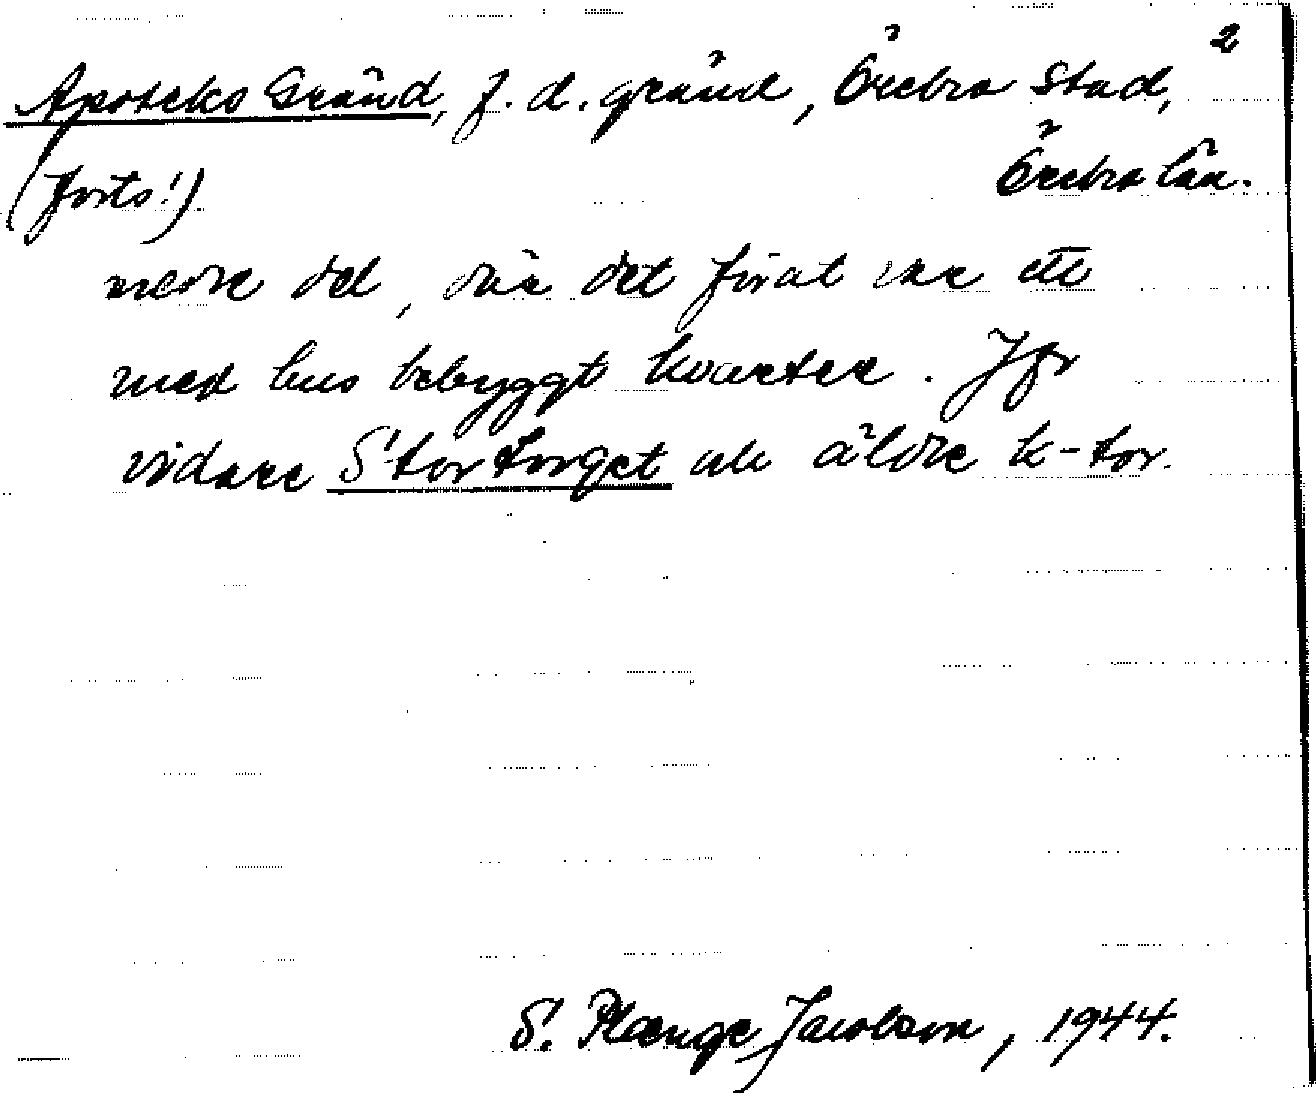 2
Apoteks Gränd, f. d. gränd, Örebro Stad,
(forts!) Örebro län.
nedre del, där det förut var ett
med hus bebyggt kvarter. Jfr
vidare Stortorget och äldre k-tor.
S. Plænge Jacobson, 1944.